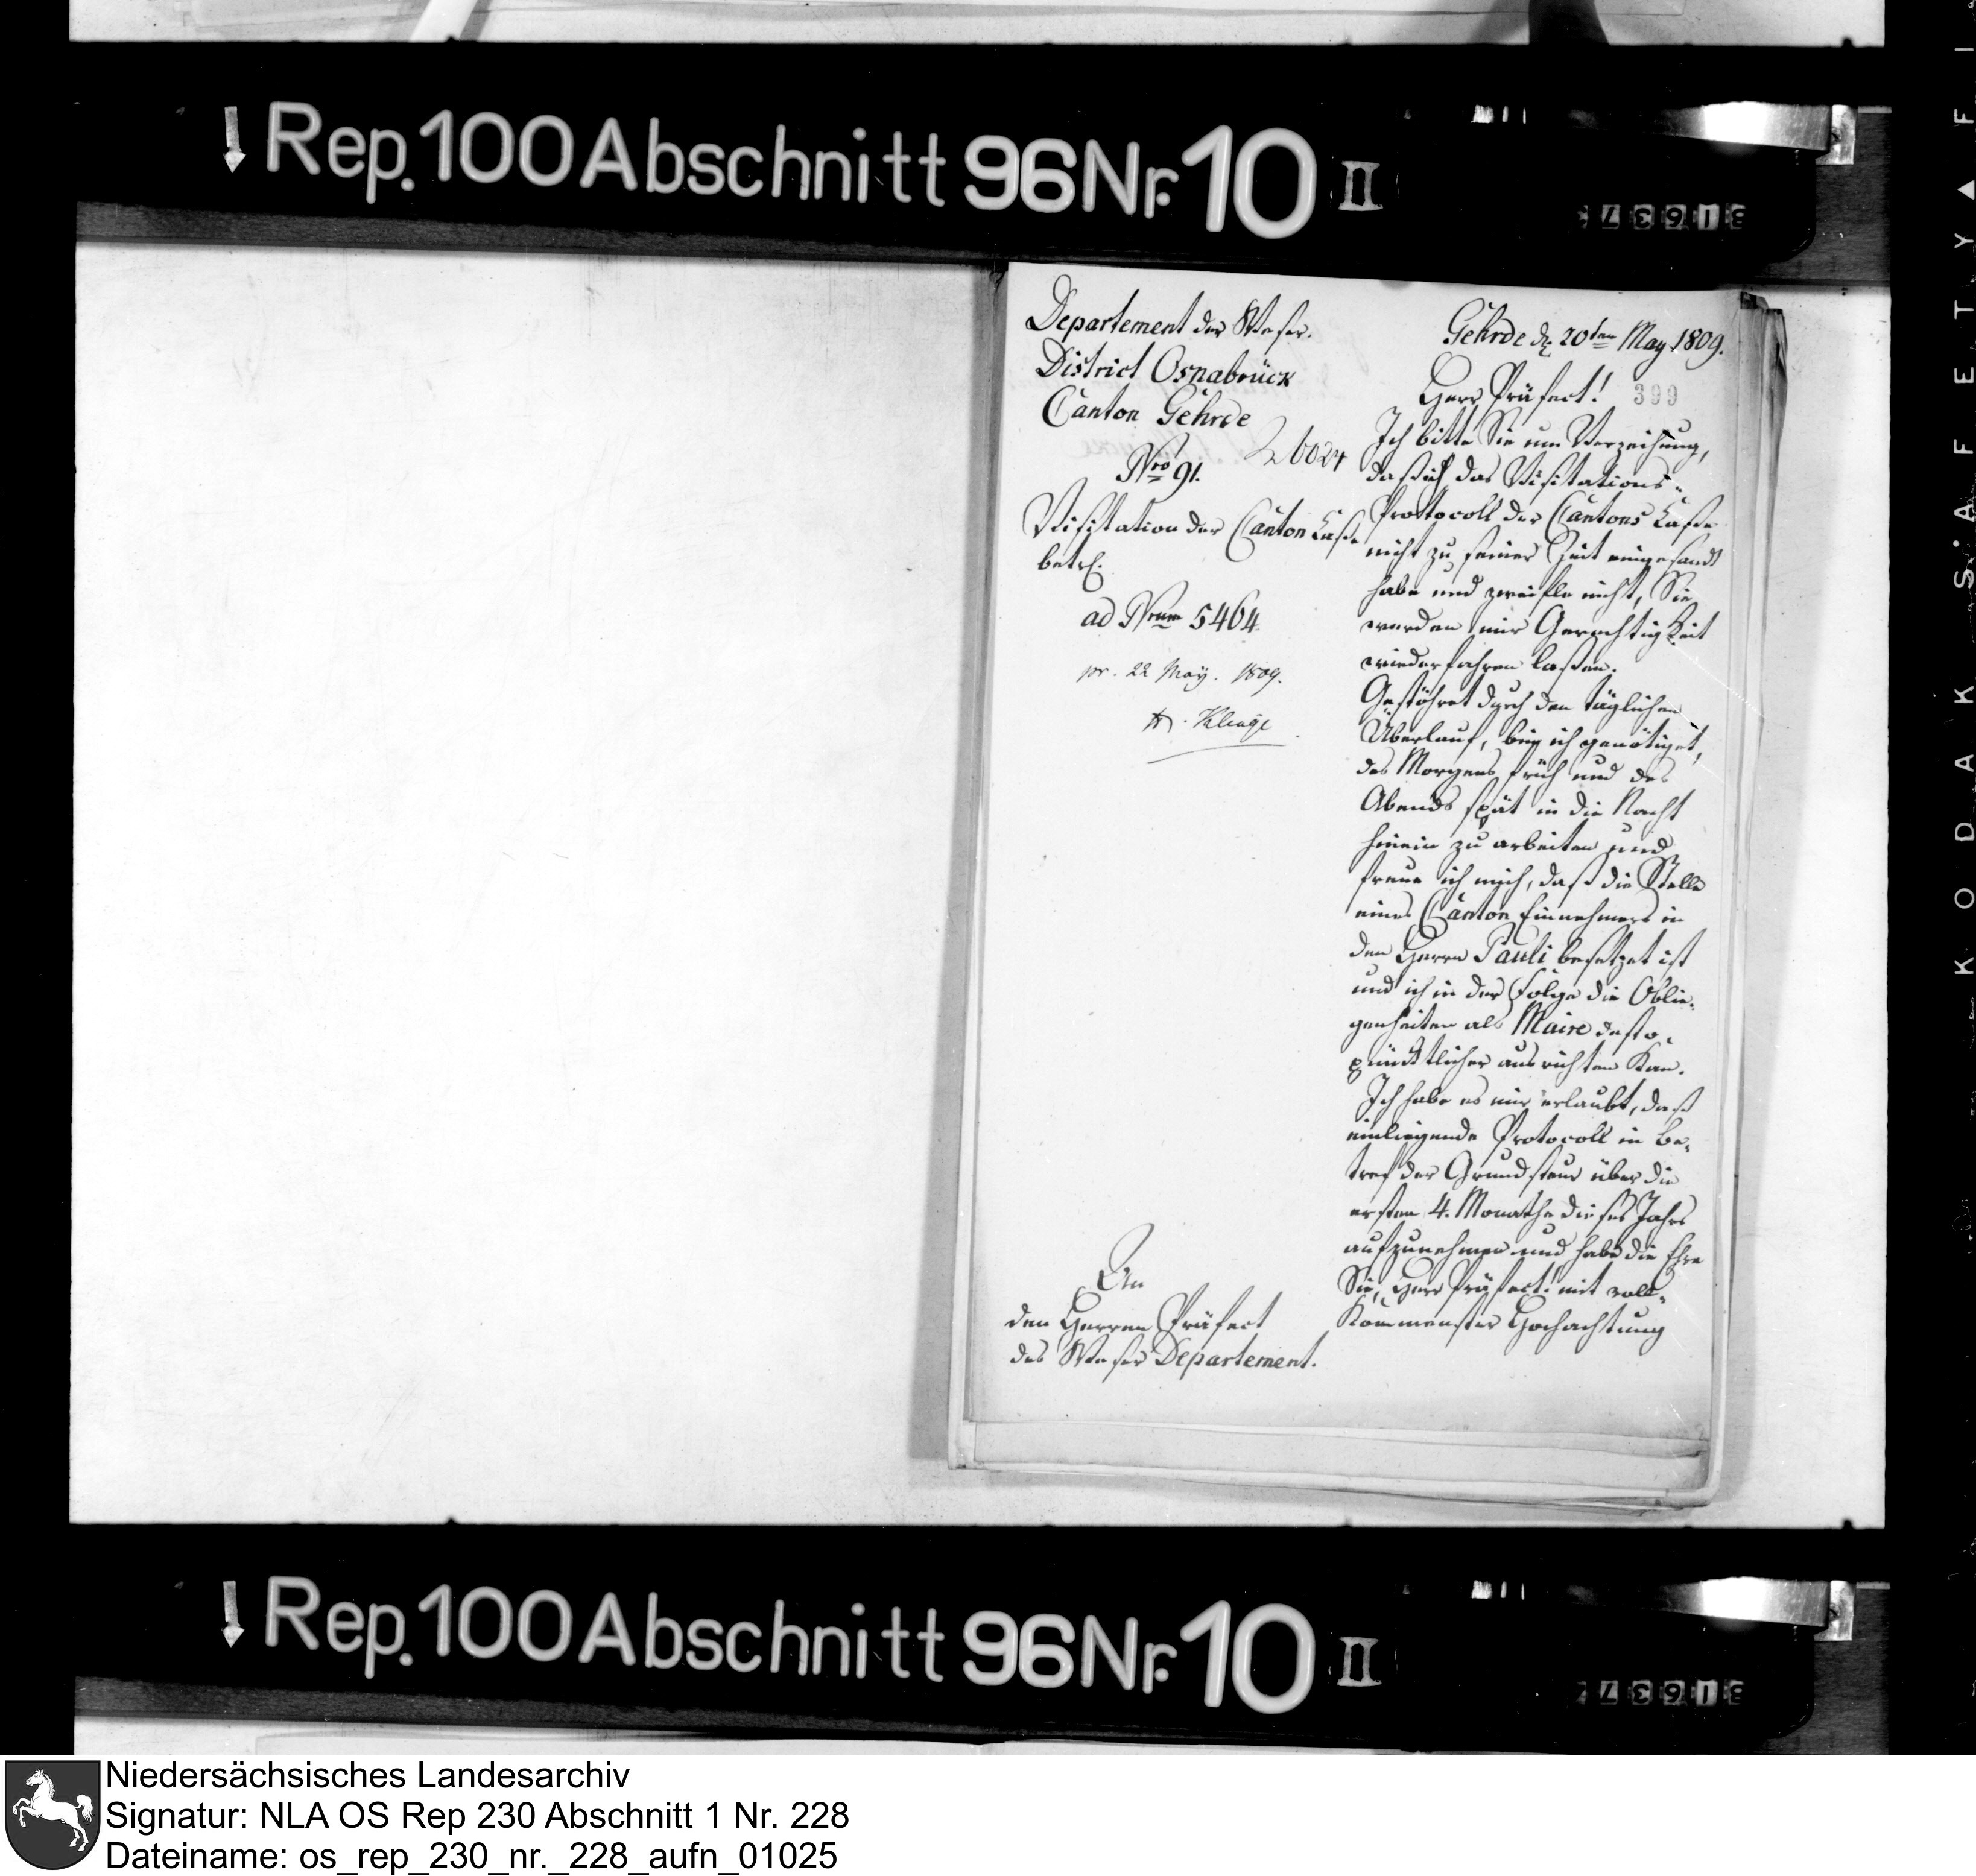 Rep. 100 Abschnitt 96 Nr. 10 II
Departement der Weser.
District Osnabrück
Canton Gehrde
Nro 91.
6024
Visitation der Canton Kasse
betrf.
ad Nrum 5464
pr. 22 May. 1809.
Kleuge
An
den Herren Präfect
des Weser Departement.
Gehrde d. 20ten May 1809.
Herr Präfect!
399
Ich bitte Sie um Verzeihung,
daß ich das Visitations-
Protocoll der Cantons Kaße
nicht zu seiner Zeit eingesandt
habe und zweifle nicht, Sie
werden mir Gerechtigkeit
wiederfahren laßen.
Gestöhret durch den täglichen
Überlauf, bin ich genötiget,
des Morgens früh und des
Abends spät in die Nacht
hinein zu arbeiten und
freue ich mich, daß die Stelle
eines Canton Einnehmers in
den Herrn Pauli besetzet ist
und ich in der Folge die Oblie-
genheiten als Maire desto
pünktlicher ausrichten kan.
Ich habe es mir erlaubt, daß
einliegende Protocoll in Be-
tref der Grundsteur über die
ersten 4. Monathe dieses Jahrs
aufzunehmen und habe die Ehre
Sie, Herr Präfect! mit voll-
kommenster Hochachtung
Rep. 100 Abschnitt 96 Nr. 10 II
KODAK SAFETY FI
Niedersächsisches Landesarchiv
Signatur: NLA OS Rep 230 Abschnitt 1 Nr. 228
Dateiname: os_rep_230_nr._228_aufn_01025